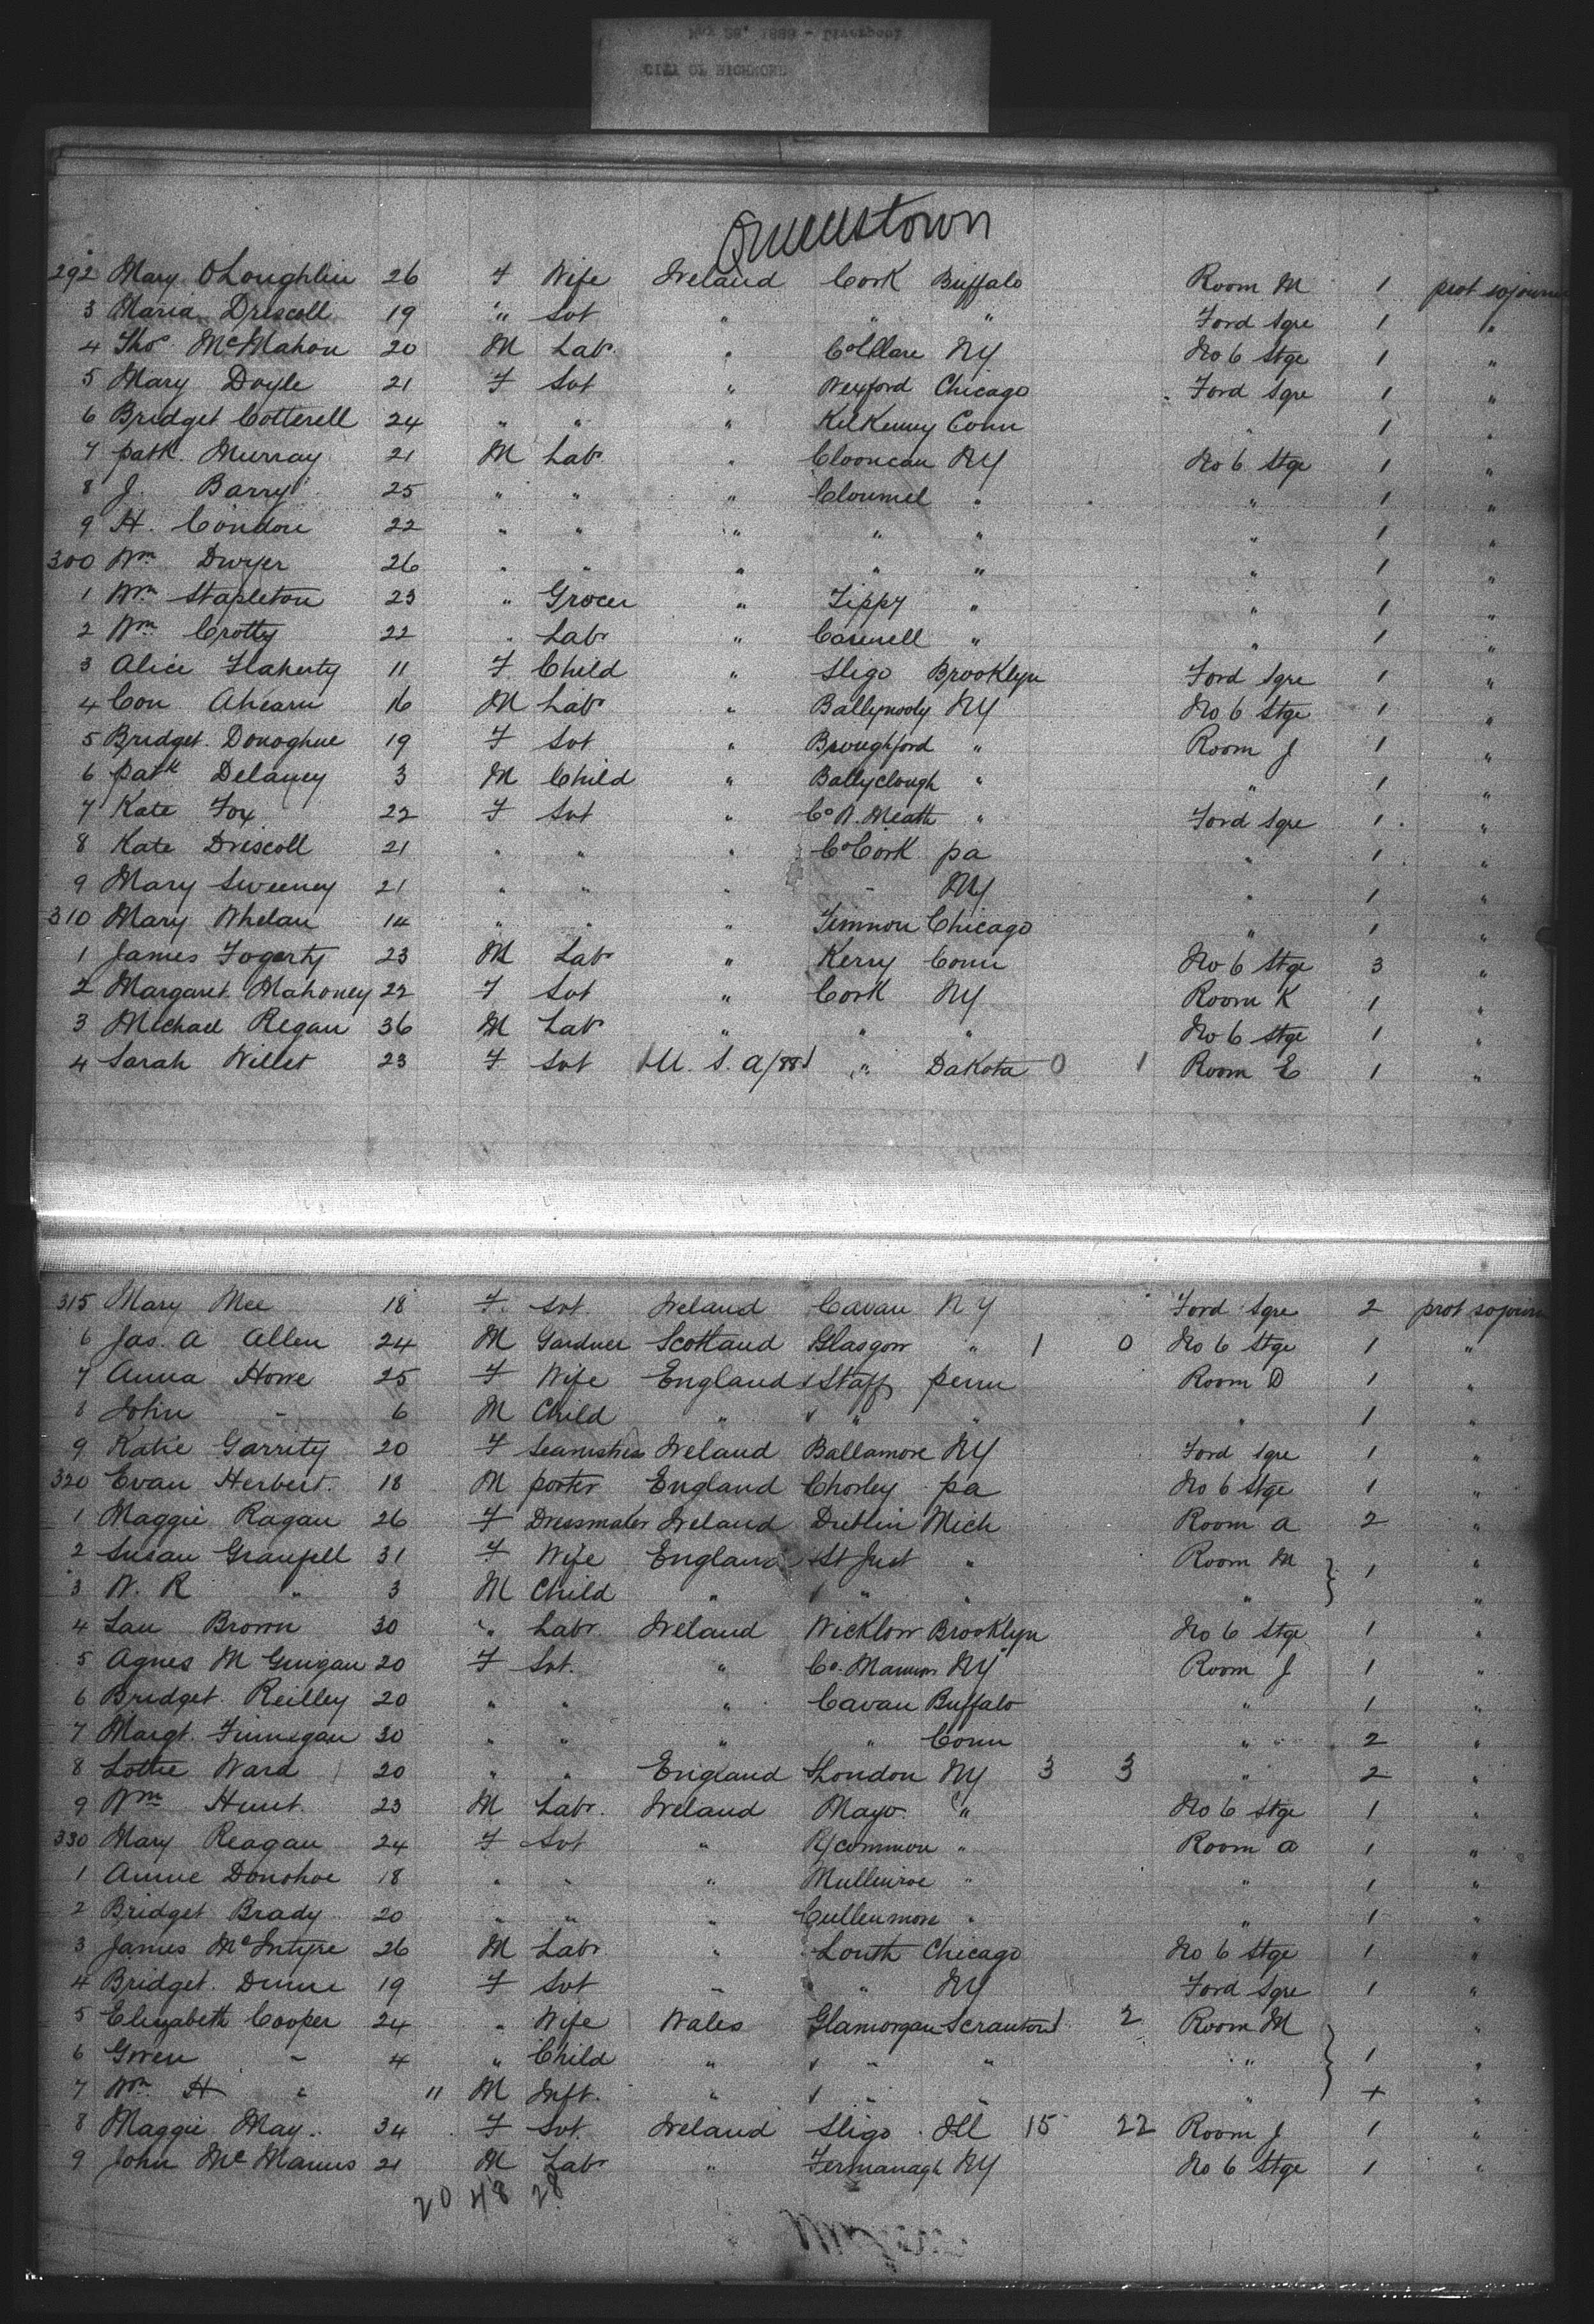 May 28, 1889 - Liverpool
CITY OF RICHMOND
Queenstown
292 Mary OLoughlin 26 F Wife Ireland Cork Buffalo Room M 1 prot sojourn
3 Maria Driscoll 19 " Svt " " " Ford Sgre 1 "
4 Thos McMahon 20 M Labr " Co Clare NY No 6 Stge 1 "
5 Mary Doyle 21 F Svt " Wexford Chicago Ford Sgre 1 "
6 Bridget Cotterell 24 " " " KilKenny Conn " 1 "
7 patk Murray 21 M Labr " Clooncan NY No 6 Stge 1 "
8 J. Barry 25 " " " Clonmel " " 1 "
9 H. Condon 22 " " " " " " 1 "
300 Wm Dwyer 26 " " " " " " 1 "
1 Wm Stapleton 23 " Grocer " Tippy " " 1 "
2 Wm Crotty 22 " Labr " " " 1 "
3 Alice Flaherty 11 F Child " Sligo Brooklyn Ford Sgre 1 "
4 Con Ahearn 16 M Labr " Ballynooly NY No 6 Stge 1 "
5 Bridget Donoghue 19 F Svt " Broughford " Room J 1 "
6 patk Delaney 3 M Child " Ballyclough " " 1 "
7 Kate Fox 22 F Svt " Co W. Meath " Ford Sgre 1 "
8 Kate Driscoll 21 " " " Co Cork pa " 1 "
9 Mary Sweeney 21 " " " " NY " 1 "
310 Mary Whelan 14 " " " Chicago " 1 "
1 James Fogerty 23 M Labr " Kerry Conn No 6 Stge 3 "
2 Margaret Mahoney 22 F Svt " Cork NY Room K 1 "
3 Michael Regan 36 M Labr " " " No 6 Stge 1 "
4 Sarah Willet 23 F Svt U. S. A/88 " Dakota 0 1 Room E 1 "
315 Mary Mee 18 F. Svt. Ireland Cavan NY Ford Sgre 2 prot sojourn
6 Jas. A Allen 24 M Gardner Scotland Glasgow " 1 0 No 6 Stge 1 "
7 Anna Howe 25 F Wife England Staff penn Room D 1 "
8 John " 6 M Child " " " " 1 "
9 Katie Garrity 20 F Seamstress Ireland Ballamore NY Ford Sgre 1 "
320 Evan Herbert 18 M porter England Chorley pa No 6 Stge 1 "
1 Maggie Ragan 26 F Dressmaker Ireland Dublin Mich Room A 2 "
2 Susan Granfell 31 F Wife England St Just " Room M 1 "
3 W. R " 3 M Child " " " " "
4 Lau Brown 30 " Labr Ireland Wicklow Brooklyn No 6 Stge 1 "
5 Agnes M Guigan 20 F Svt. " Co. NY Room J 1 "
6 Bridget Reilley 20 " " " Cavan Buffalo " 1 "
7 Margt. Finnegan 30 " " " " Conn " 2 "
8 Lottie Ward 20 " " England London NY 3 3 " 2 "
9 Wm Hunt 23 M Labr. Ireland Mayo " No 6 Stge 1 "
330 Mary Reagan 24 F Svt " R/common " Room A 1 "
1 Annie Donohoe 18 " " " Mullinroe " " 1 "
2 Bridget Brady 20 " " " Cullenmore " " 1 "
3 James McIntyre 26 M Labr " Louth Chicago No 6 Stge 1 "
4 Bridget Dunne 19 F Svt " " NY Ford Sgre 1 "
5 Elizabeth Cooper 24 " Wife Wales Glamorgan Scranton 1 2 Room M "
6 Gwen " 4 " Child " " " " 1 "
7 Wm H " 11 M Inft. " " " + "
8 Maggie May 34 F Svt. Ireland Sligo Ill 15 22 Room J 1 "
9 John McManus 21 M Labr " Fermanagh NY No 6 Stge 1 "
20 48 28